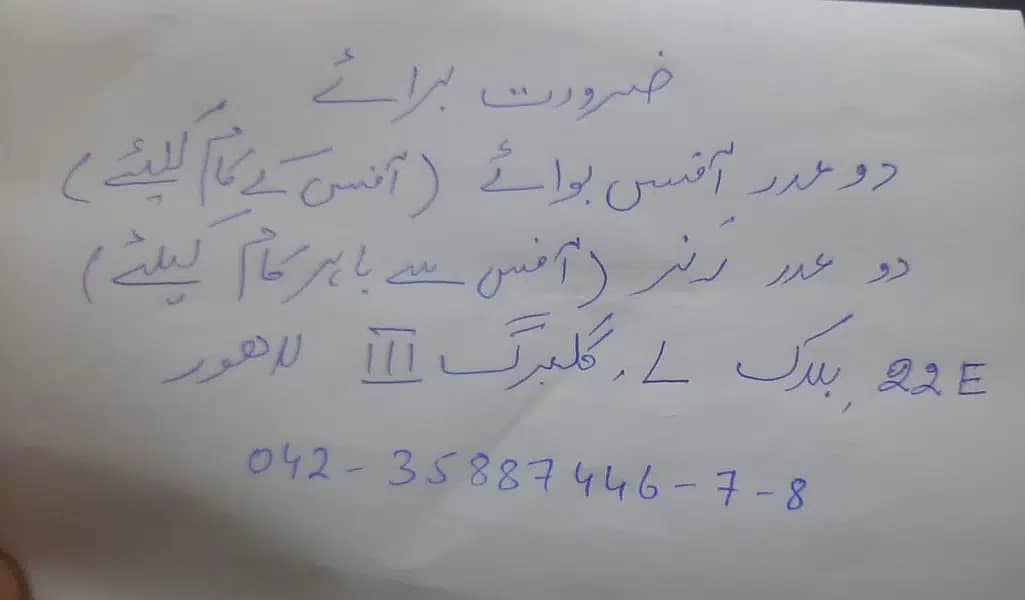 ضرورت برائے
دو عدد آفس بوائے (آفس کے کام کیلئے)
دو عدد رنر (آفس سے باہر کام کیلئے)
22E بلاک L، گلبرگ III لاهور
042-35887446-7-8